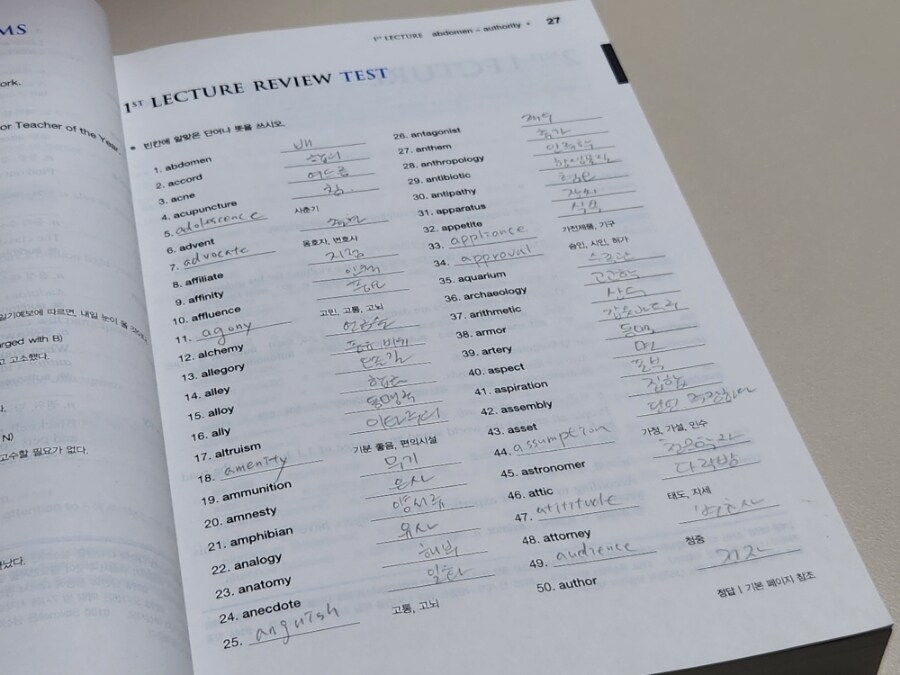 MS
ork.
or Teacher of the Year.
arged with B)
고 고소했다.
N)
고수할 필요가 없다.
1ST LECTURE abdomen – authority 27
1ST LECTURE REVIEW TEST
• 빈칸에 알맞은 단어나 뜻을 쓰시오.
1. abdomen 배
2. accord
3. acne 여드름
4. acupuncture 침
5. adolescence 사춘기
6. advent
7. advocate 옹호자, 변호사
8. affiliate
9. affinity
10. affluence 풍요
11. agony 고민, 고통, 고뇌
12. alchemy 연금술
13. allegory 풍유, 비유
14. alley
15. alloy 합금
16. ally 동맹국
17. altruism 이타주의
18. amenity 기분 좋음, 편의시설
19. ammunition 무기
20. amnesty 은사
21. amphibian 양서류
22. analogy 유사
23. anatomy 해부
24. anecdote 일화
25. anguish 고통, 고뇌
26. antagonist
27. anthem
28. anthropology 인류학
29. antibiotic 항생물질
30. antipathy
31. apparatus
32. appetite 식욕
33. appliance 가전제품, 기구
34. approval 승인, 시인, 허가
35. aquarium 수족관
36. archaeology 고고학
37. arithmetic 산수
38. armor
39. artery 동맥
40. aspect 면
41. aspiration
42. assembly 집합
43. asset
44. assumption 가정, 가설, 인수
45. astronomer
46. attic 다락방
47. atititude 태도, 자세
48. attorney 변호사
49. audience 청중
50. author 저자
정답 | 기본 페이지 참조